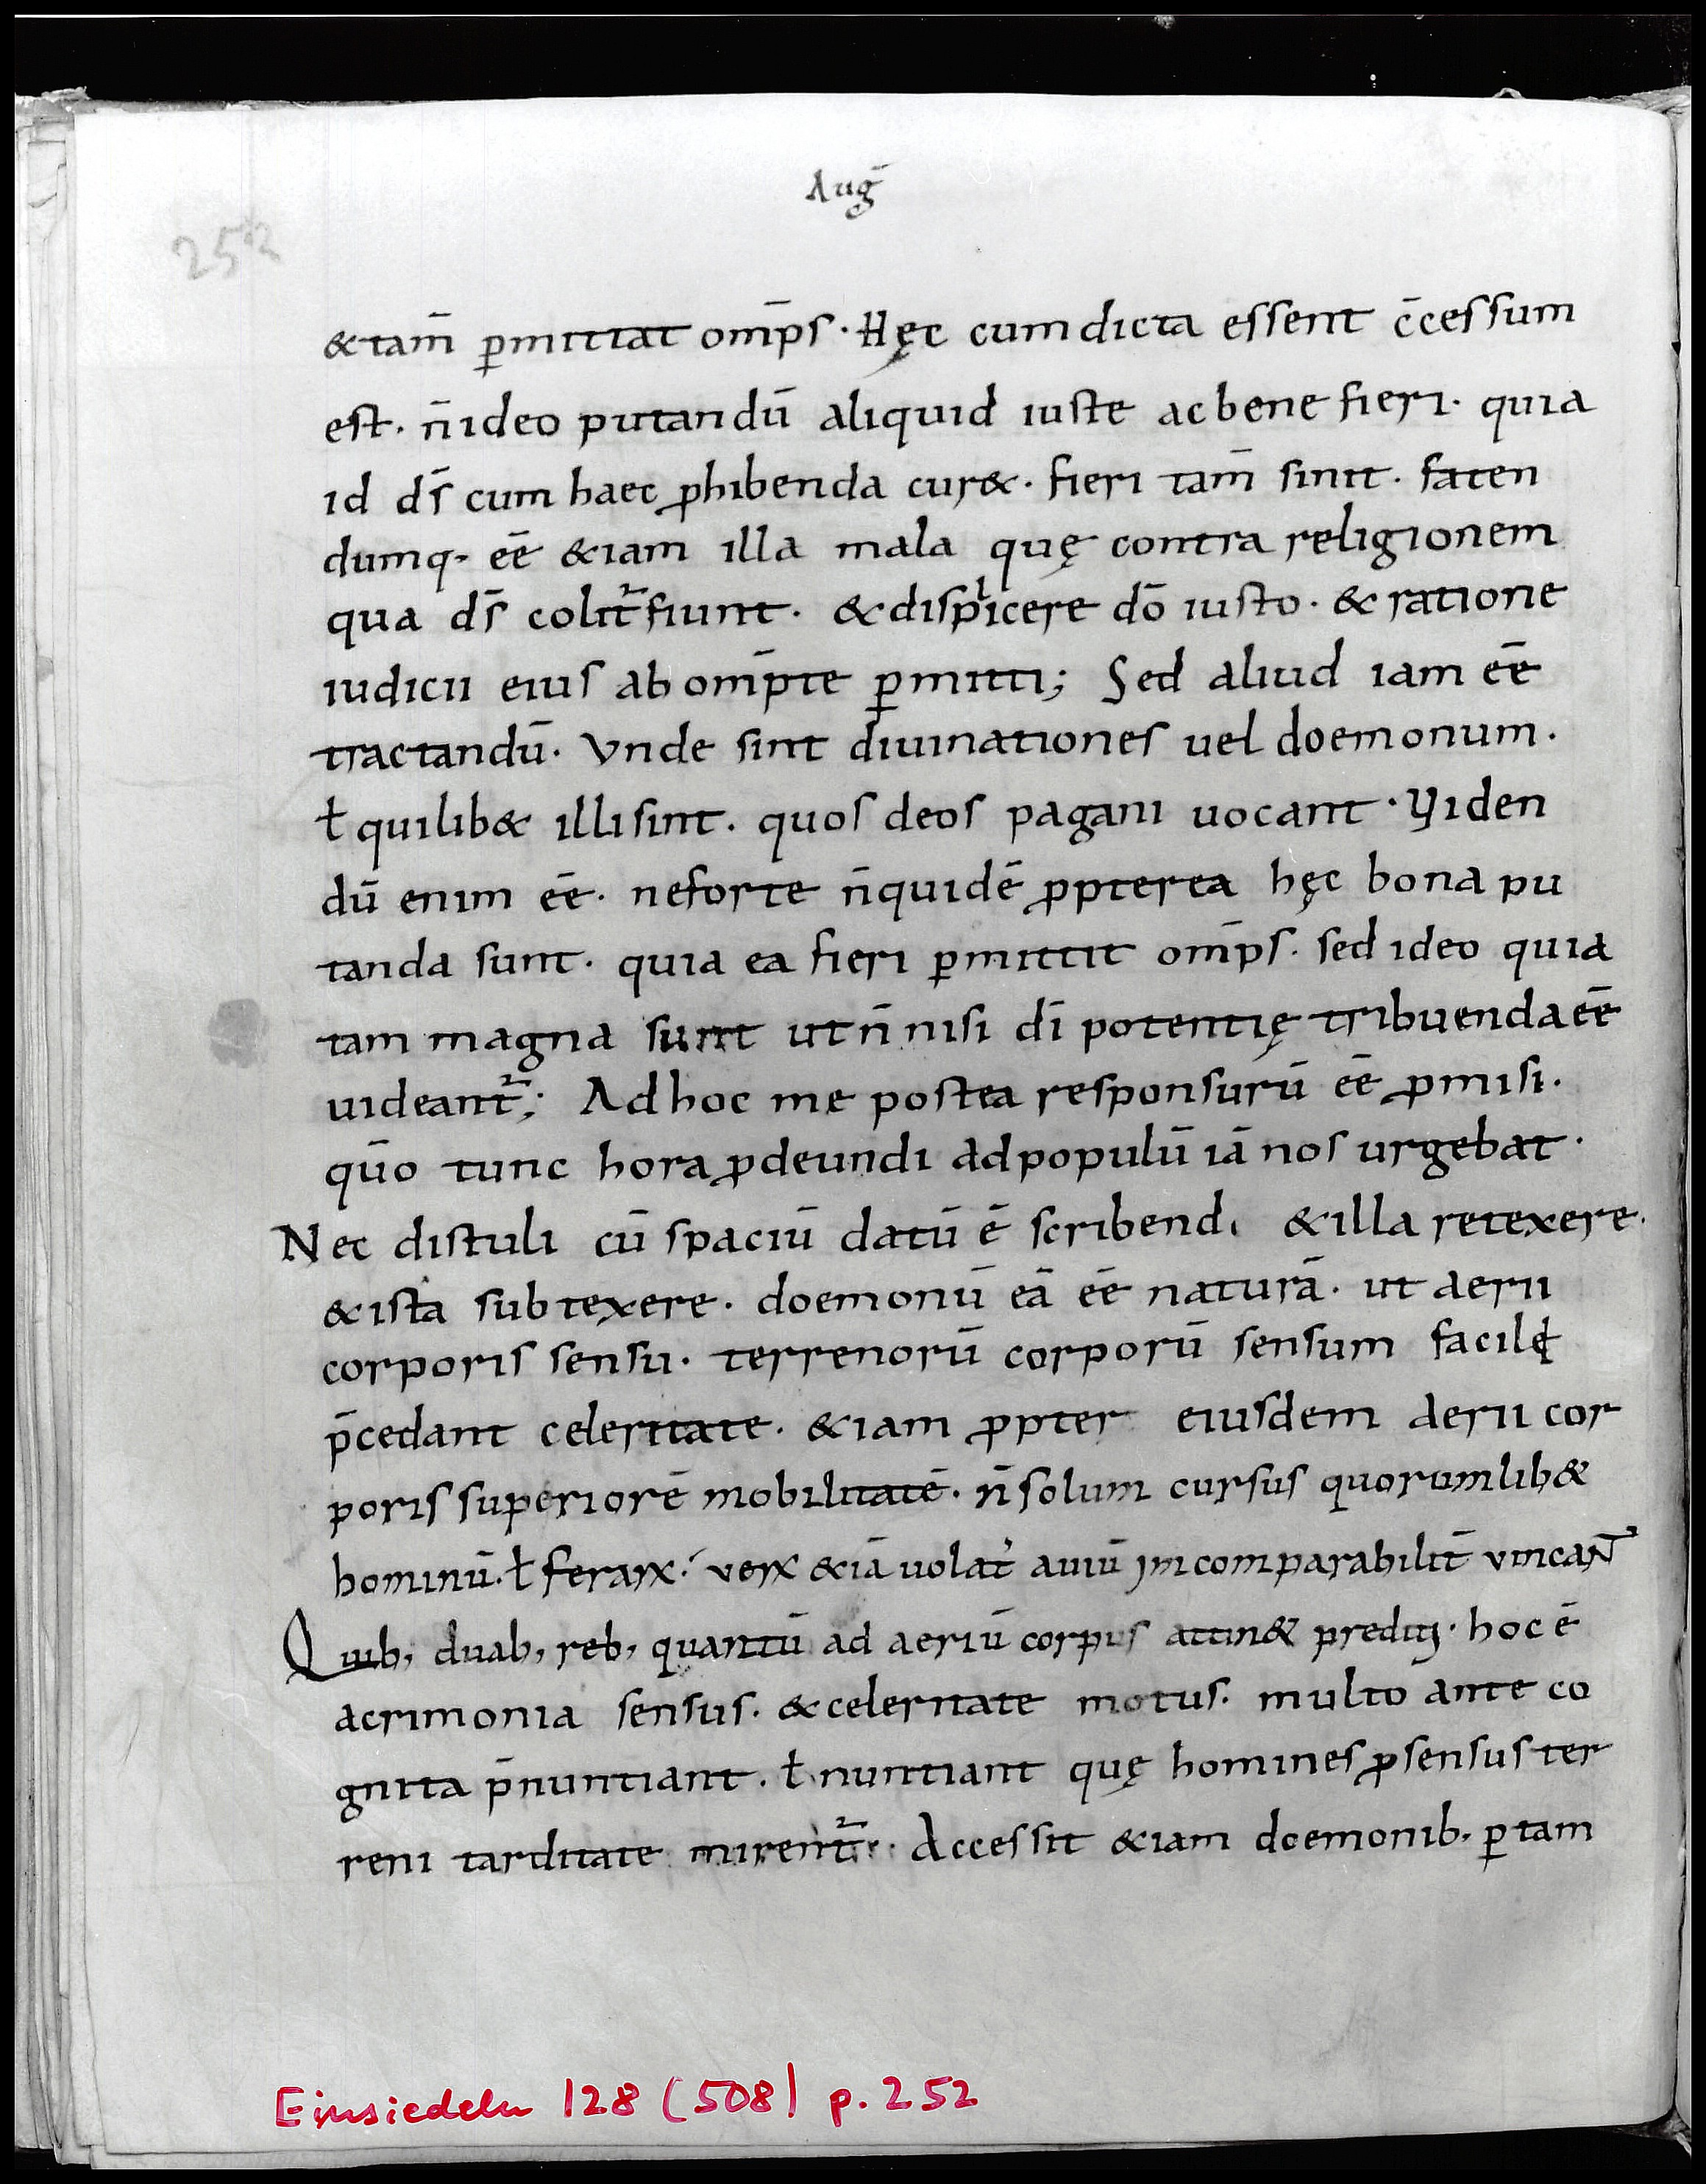 Aug̅
252
& tam̅ ꝑmittat om̅ps · Hęc cum dicta essent c̅cessum
est · n̅ ideo putandū aliquid iuste ac bene fieri · quia
id dſ̅ cum haec ꝓhibenda cur& · fieri tam̅ sinit · faten
dumq· ee̅ &iam illa mala quę contra religionem
qua dſ̅ colit᷑ fiunt · & displicere do̅ iusto · & ratione
iudicii eius ab om̅pte ꝑmitti; Sed aliud iam ee̅
tractandū · Vnde sint diuinationes uel doemonum ·
ł quilib& illi sint · quos deos pagani uocant · Viden
dū enim ee̅ · ne forte n̅ quidē ꝓpterea hęc bona pu
tanda sunt · quia ea fieri ꝑmittit om̅ps · sed ideo quia
tam magna sunt ut n̅ nisi di̅ potentię tribuenda ee̅
uideant᷑; Ad hoc me postea responsurū ee̅ ꝓmisi ·
quo̅ tunc hora ꝓdeundi ad populū iā nos urgebat ·
Nec distuli cū spaciū datū ē scribendi & illa retexere ·
& ista subtexere · doemonū eā ee̅ naturā · ut aerii
corporis sensu · terrenorū corporū sensum facile
p̅cedant celeritate · &iam ꝓpter eiusdem aerii cor
poris superiorē mobilitatē · n̅ solum cursus quorumlib&
hominū · ł feraꝝ · veꝝ &iā uolat᷒ auiū incomparabilit̅ vincant᷑
Quib; duab; reb; quantū ad aeriū corpus attin& prediti · hoc ē
acrimonia sensus · & celeritate motus · multo ante co
gnita p̅nuntiant · ł nuntiant quę homines ꝓ sensus ter
reni tarditate mirent᷑ · Accessit &iam doemonib· ꝑ tam
Einsiedeln 128 (508) p. 252